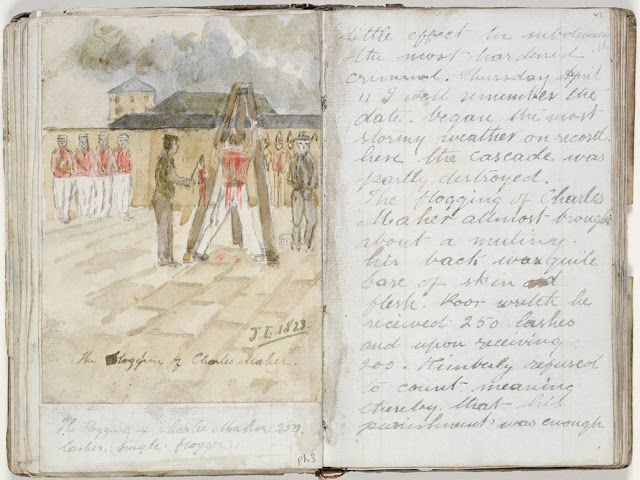 J.E. 1823
The Flogging of Charles Maher.
The Flogging of Charles Maher 250
lashes. Single flogger.
pl.3
little effect in subduing
the most hardened
criminal. Thursday April
11 I well remember the
date. began the most
stormy weather on record
here the Cascade was
partly destroyed.
The flogging of Charles
Maher almost brough
about a mutiny.
his back was quite
bare of skin and
flesh. Poor wretch he
received 250 lashes
and upon receiving
200. Kimberly refused
to count meaning
thereby that his
punishment was enough